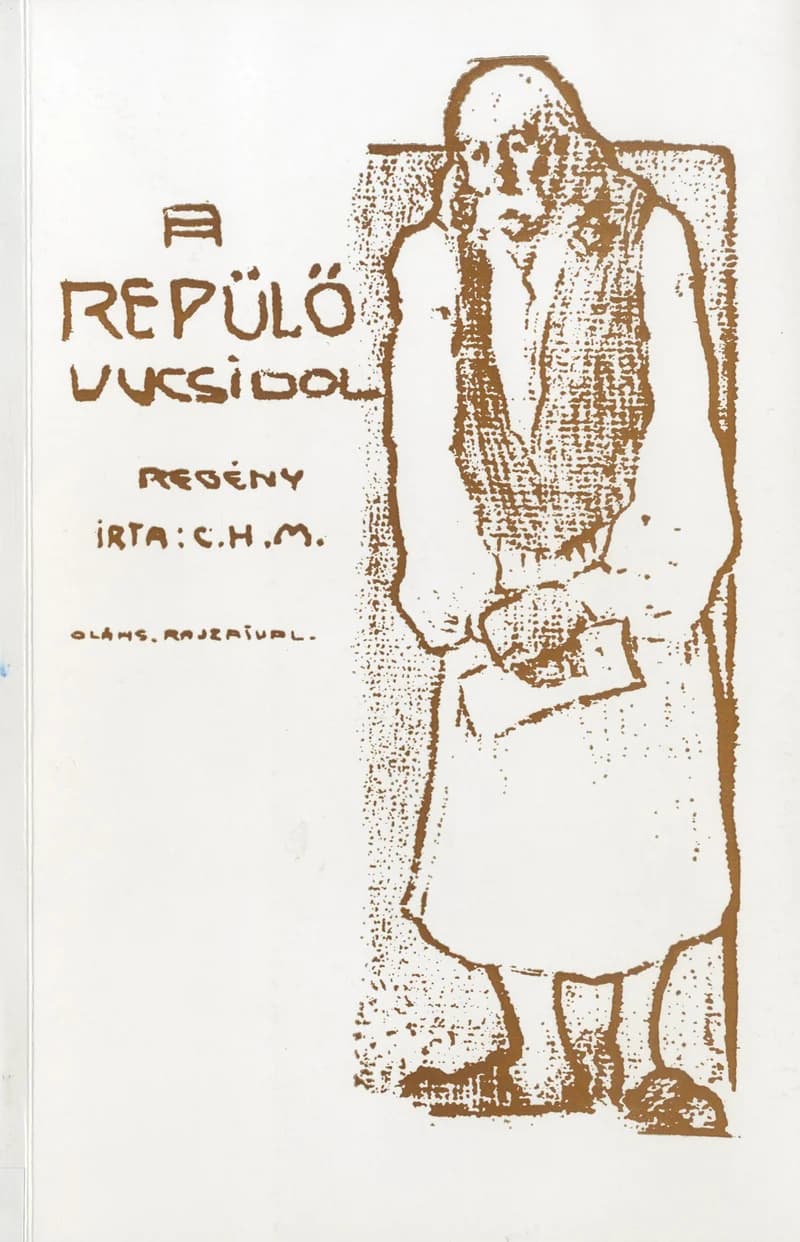 A
REPÜLŐ
VUCSIDOL
REGÉNY
ÍRTA: C.H.M.
OLÁH S. RAJZAIVAL.